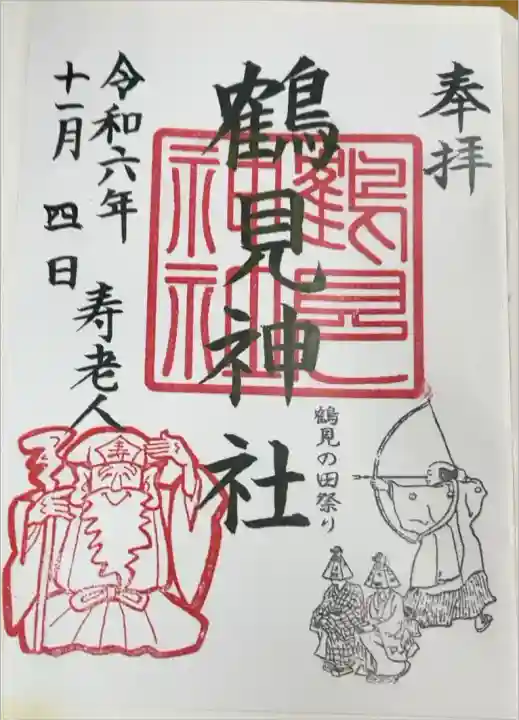 奉拝
鶴見神社
鶴見神社
鶴見の田祭り
寿老人
寿
令和六年
十一月四日